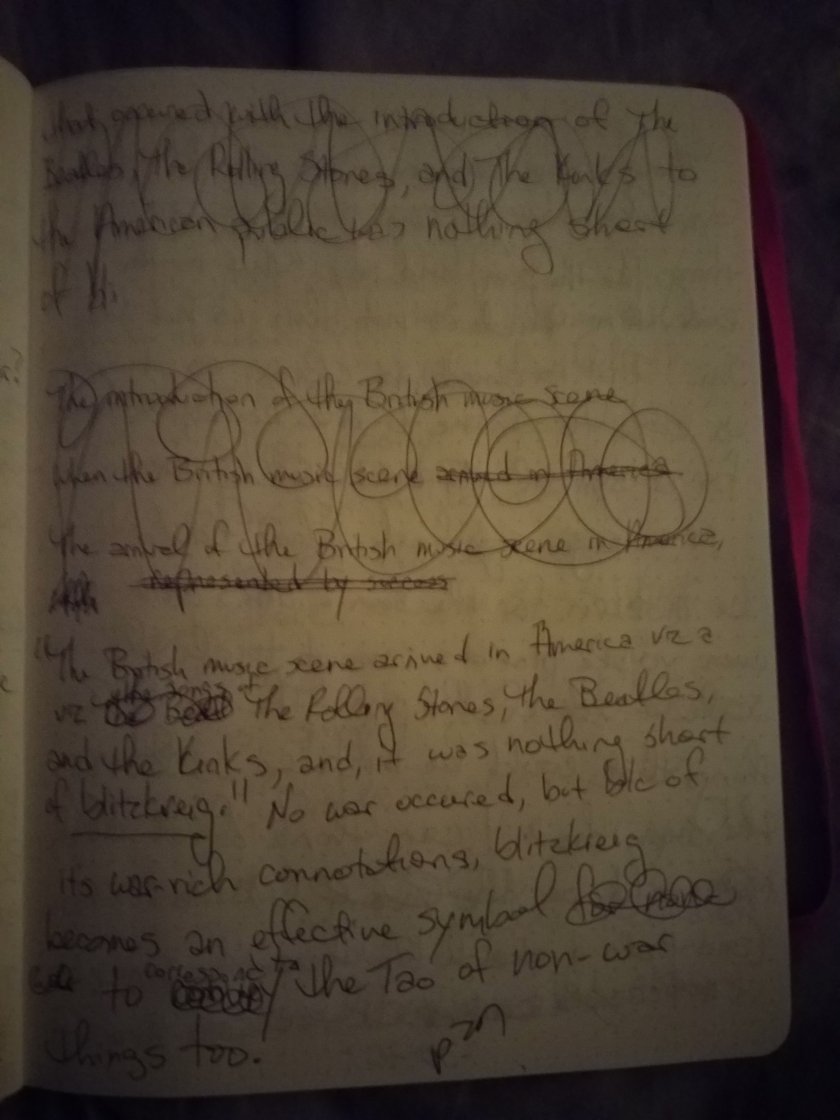 that occured with the introduction of The
Beatles, The Rolling Stones, and The Kinks to
the American public was nothing short
of bli
The introduction of the British music scene
when the British music scene arrived in America
The arrival of the British music scene in America,
represented by success
"The British music scene arrived in America via
the songs of
via The Rolling Stones, the Beatles,
and the Kinks, and, it was nothing short
of blitzkreig." No war occured, but b/c of
its war-rich connotations, blitzkreig
becomes an effective symbol
correspond to
to the Tao of non-war
things too.